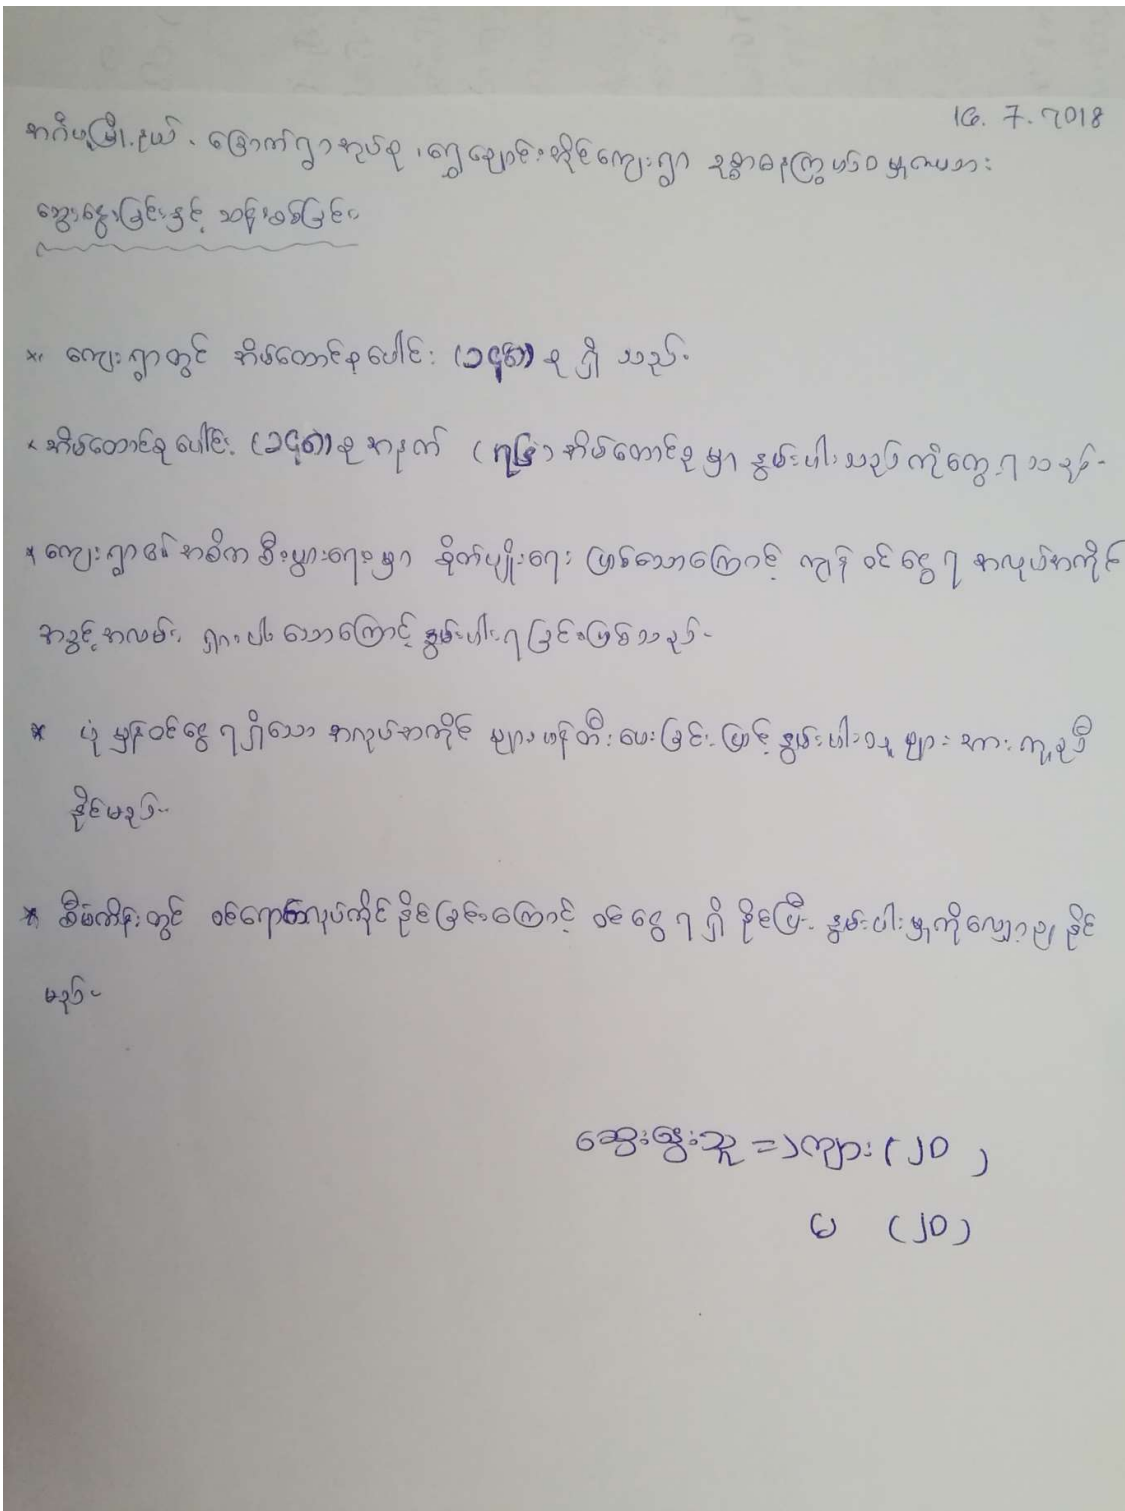 16. 7. 2018
အင်္ဂပူမြို့နယ်၊ မြောက်ရွာအုပ်စု၊ ရွှေချောင်းအိုင်ကျေးရွာ
ဆွေးနွေးခြင်းနှင့် သန်းစစ်ခြင်း။
* ကျေးရွာတွင် အိမ်ထောင်စုပေါင်း (၁၄၆) စု ရှိ သည်။
* အိမ်ထောင်စုပေါင်း (၁၄၆) စု အနက် အိမ်ထောင်စု မှာ နွမ်းပါးသည်ကိုတွေ့ရသည်။
* ကျေးရွာ၏ အဓိက စီးပွားရေးမှာ စိုက်ပျိုးရေး ဖြစ်သောကြောင့် ကျန် ဝင်ငွေရ အလုပ်အကိုင်
အခွင့်အလမ်း ရှားပါးသောကြောင့် နွမ်းပါးရခြင်းဖြစ်သည်။
* ပုံ မှန်ဝင်ငွေ ရရှိသော အလုပ်အကိုင် များ ဖန်တီးပေးခြင်းဖြင့် နွမ်းပါးသူများ အား ကူညီ
နိုင်မည်။
* စီမံကိန်းတွင် ဝင်ရောက်လုပ်ကိုင် နိုင်ခြင်းကြောင့် ဝင်ငွေ ရရှိ နိုင်ပြီး နွမ်းပါးမှုကိုလျှော့ချ နိုင်
မည်။
ဆွေးနွေးသူ = ကျား (၂၀)
မ (၂၀)